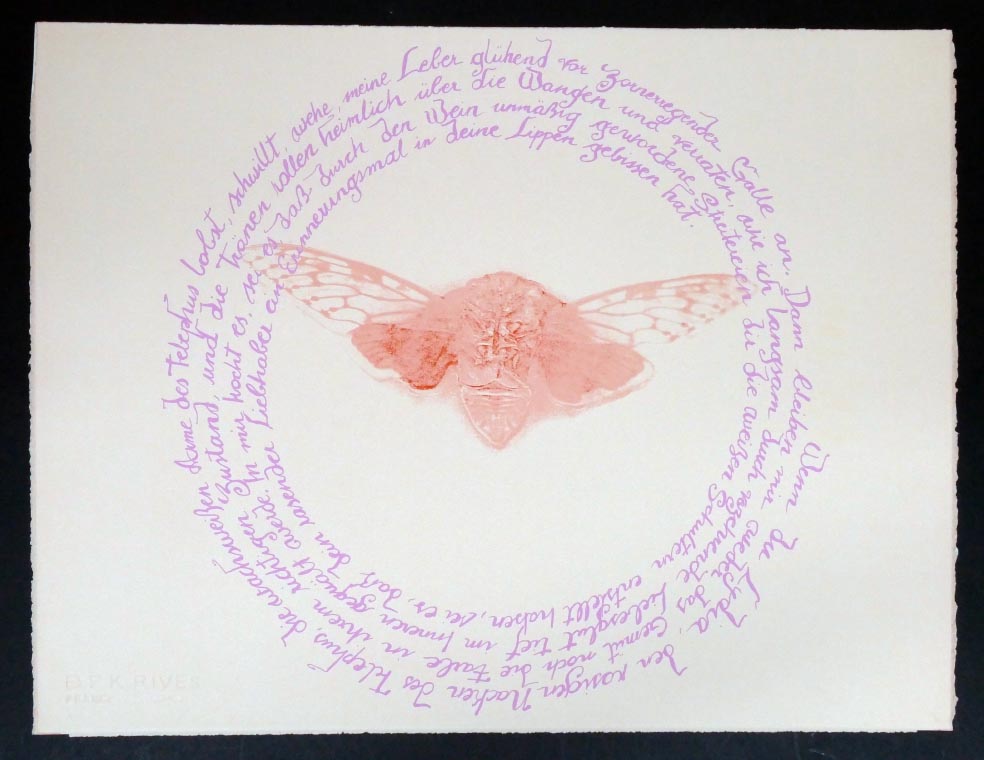 Wenn du Lydia, den rosigen Nacken des Telephus, die wachsweißen Arme des Telephus lobst, schwillt, wehe, meine Leber glühend vor zornerregender Galle an. Dann bleiben mir
weder das Gemüt noch die Farbe in ihrem richtigen Zustand, und die Tränen rollen heimlich über die Wangen und verraten, wie ich langsam durch
zehrende Liebesglut tief im Inneren gequält werde. In mir kocht es, sei es, daß durch den Wein unmäßig gewordene Streitereien dir die weißen
Schultern entstellt haben, sei es, daß dein rasender Liebhaber ein Erinnerungsmal in deine Lippen gebissen hat.
B.F.K. RIVES
FRANCE